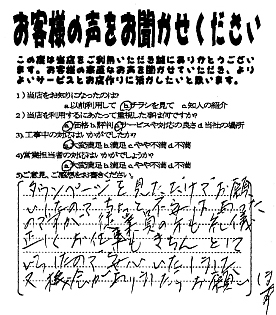 お客様の声をお聞かせください
この度は当店をご利用いただき誠にありがとうござい
ます。お客様の率直なお声を聞かせていただき、より
よいサービスとお店作りに活かしたいと思います。
1)当店をお知りになったのは?
a.以前利用して b.チラシを見て c.知人の紹介
2)当店を利用するにあたって重視した事は何ですか?
a.価格 b.評判 c.サービスや対応の良さ d.当社の場所
3)工事中の対応はいかがでしたか?
a.大変満足 b.満足 c.やや不満 d.不満
4)営業担当者の対応はいかがでしょうか?
a.大変満足 b.満足 c.やや不満 d.不満
5)ご意見、ご感想をお書きください。
タウンページを見ただけでお願
いしたのでちょっと不安はあった
のですが、従業員の方も礼儀
正しくお仕事もきちんとして
いらしたので安心いたしました
又機会がありましたらお願いします